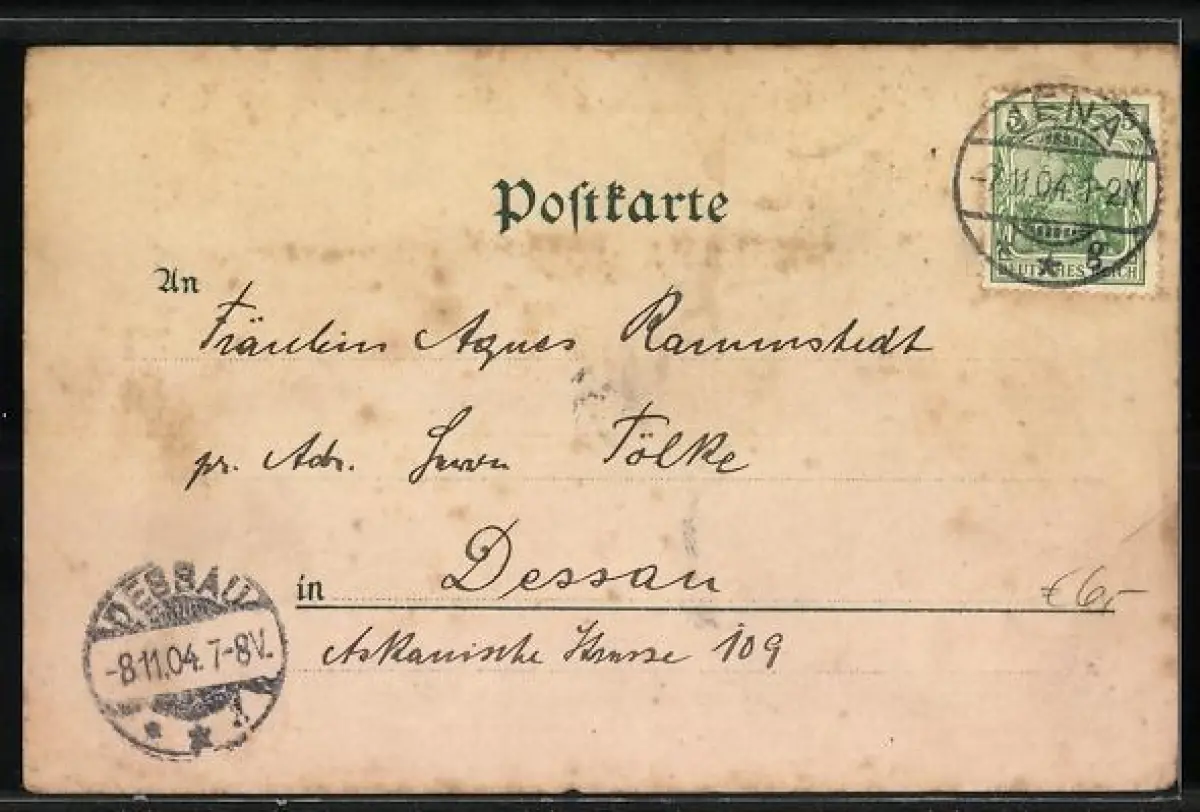 JENA
5 5
-7.11.04.1-2N
* * g
DEUTSCHES REICH
Postkarte
An
Fräulein Agnes Rammstedt
pr. Adr. Herrn Tölke
in Dessau
€ 6,-
Askanische Strasse 109
DESSAU
-8.11.04.7-8V.
* * 1